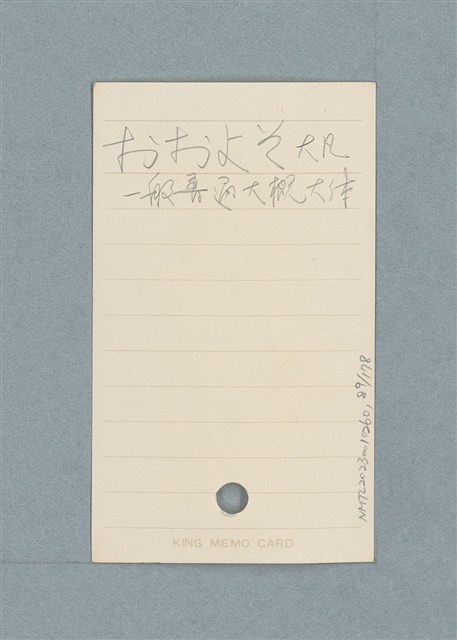 おおよそ 大凡
一般普通大概大体
KING MEMO CARD
NMTL20230010260, 89/178